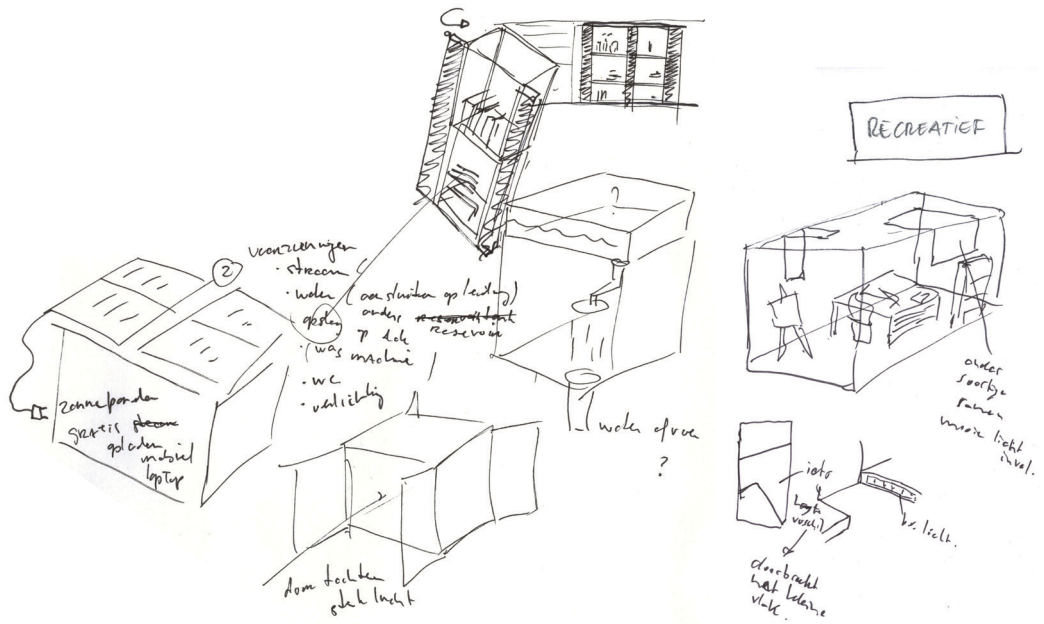 RECREATIEF
?
2
voorzieningen
• stroom
• water (aansluiten op leiding)
opslag anders reservoir
• (was machine
• wc
• verlichting
zonnepanden
gratis
opladen
mobiel
laptop
water afvoer
?
door tochten
licht
ander
soortige
ramen
mooie licht
inval.
iets
hoogte
verschil
doorbreekt
het kleine
vlak.
licht.